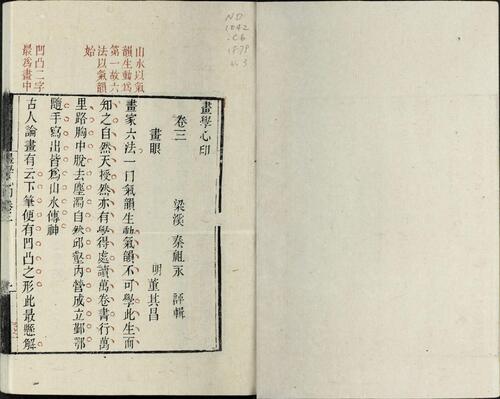 ND
1042
.C6
1879
v.3
畫學心印
卷三 梁溪 秦祖永 評輯
畫眼 明 董其昌
山水以氣
韻生動爲
第一故六
法以氣韻
始
畫家六法一曰氣韻生動氣韻不可學此生而
知之自然天授然亦有學得處讀萬卷書行萬
里路胸中脫去塵濁自然邱壑內營成立鄞鄂
隨手寫出皆爲山水傳神
凹凸二字
最爲畫中
古人論畫有云下筆便有凹凸之形此最懸解
畫學心印卷三